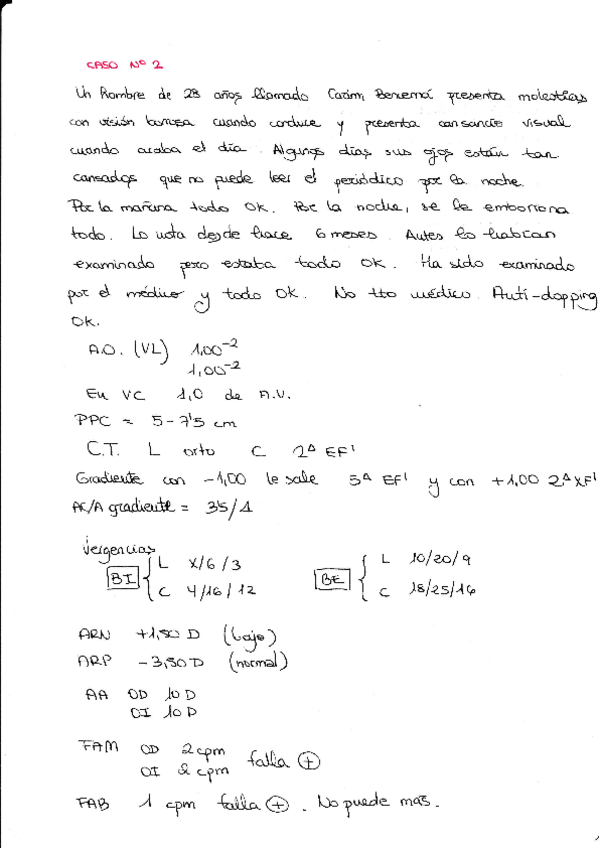 CASO Nº 2
Un hombre de 28 años llamado Carim, Benzema presenta molestias
con visión borrosa cuando conduce y presenta cansancio visual
cuando acaba el día. Algunos días sus ojos están tan
cansados que no puede leer el periódico por la noche.
Por la mañana todo OK. Por la noche, se le emborrona
todo. Lo nota desde hace 6 meses. Antes lo habían
examinado pero estaba todo OK. Ha sido examinado
por el médico y todo OK. No tto médico. Anti-dopping
OK.
A.O. (VL) 1,00⁻²
1,00⁻²
En VC 1,0 de A.V.
PPC = 5-7'5 cm
C.T. L orto C 2Δ EF'
Gradiente con -1,00 le sale 5Δ EF' y con +1,00 2Δ XF'
AC/A gradiente = 3'5/1
vergencias
BI L X/6/3
C 4/16/12
BE L 10/20/9
C 18/25/16
ARN +1,50 D (bajo)
ARP -3,50 D (normal)
AA OD 10 D
OI 10 D
FAM OD 2 cpm
OI 2 cpm falla ⊕
FAB 1 cpm falla ⊕. No puede más.